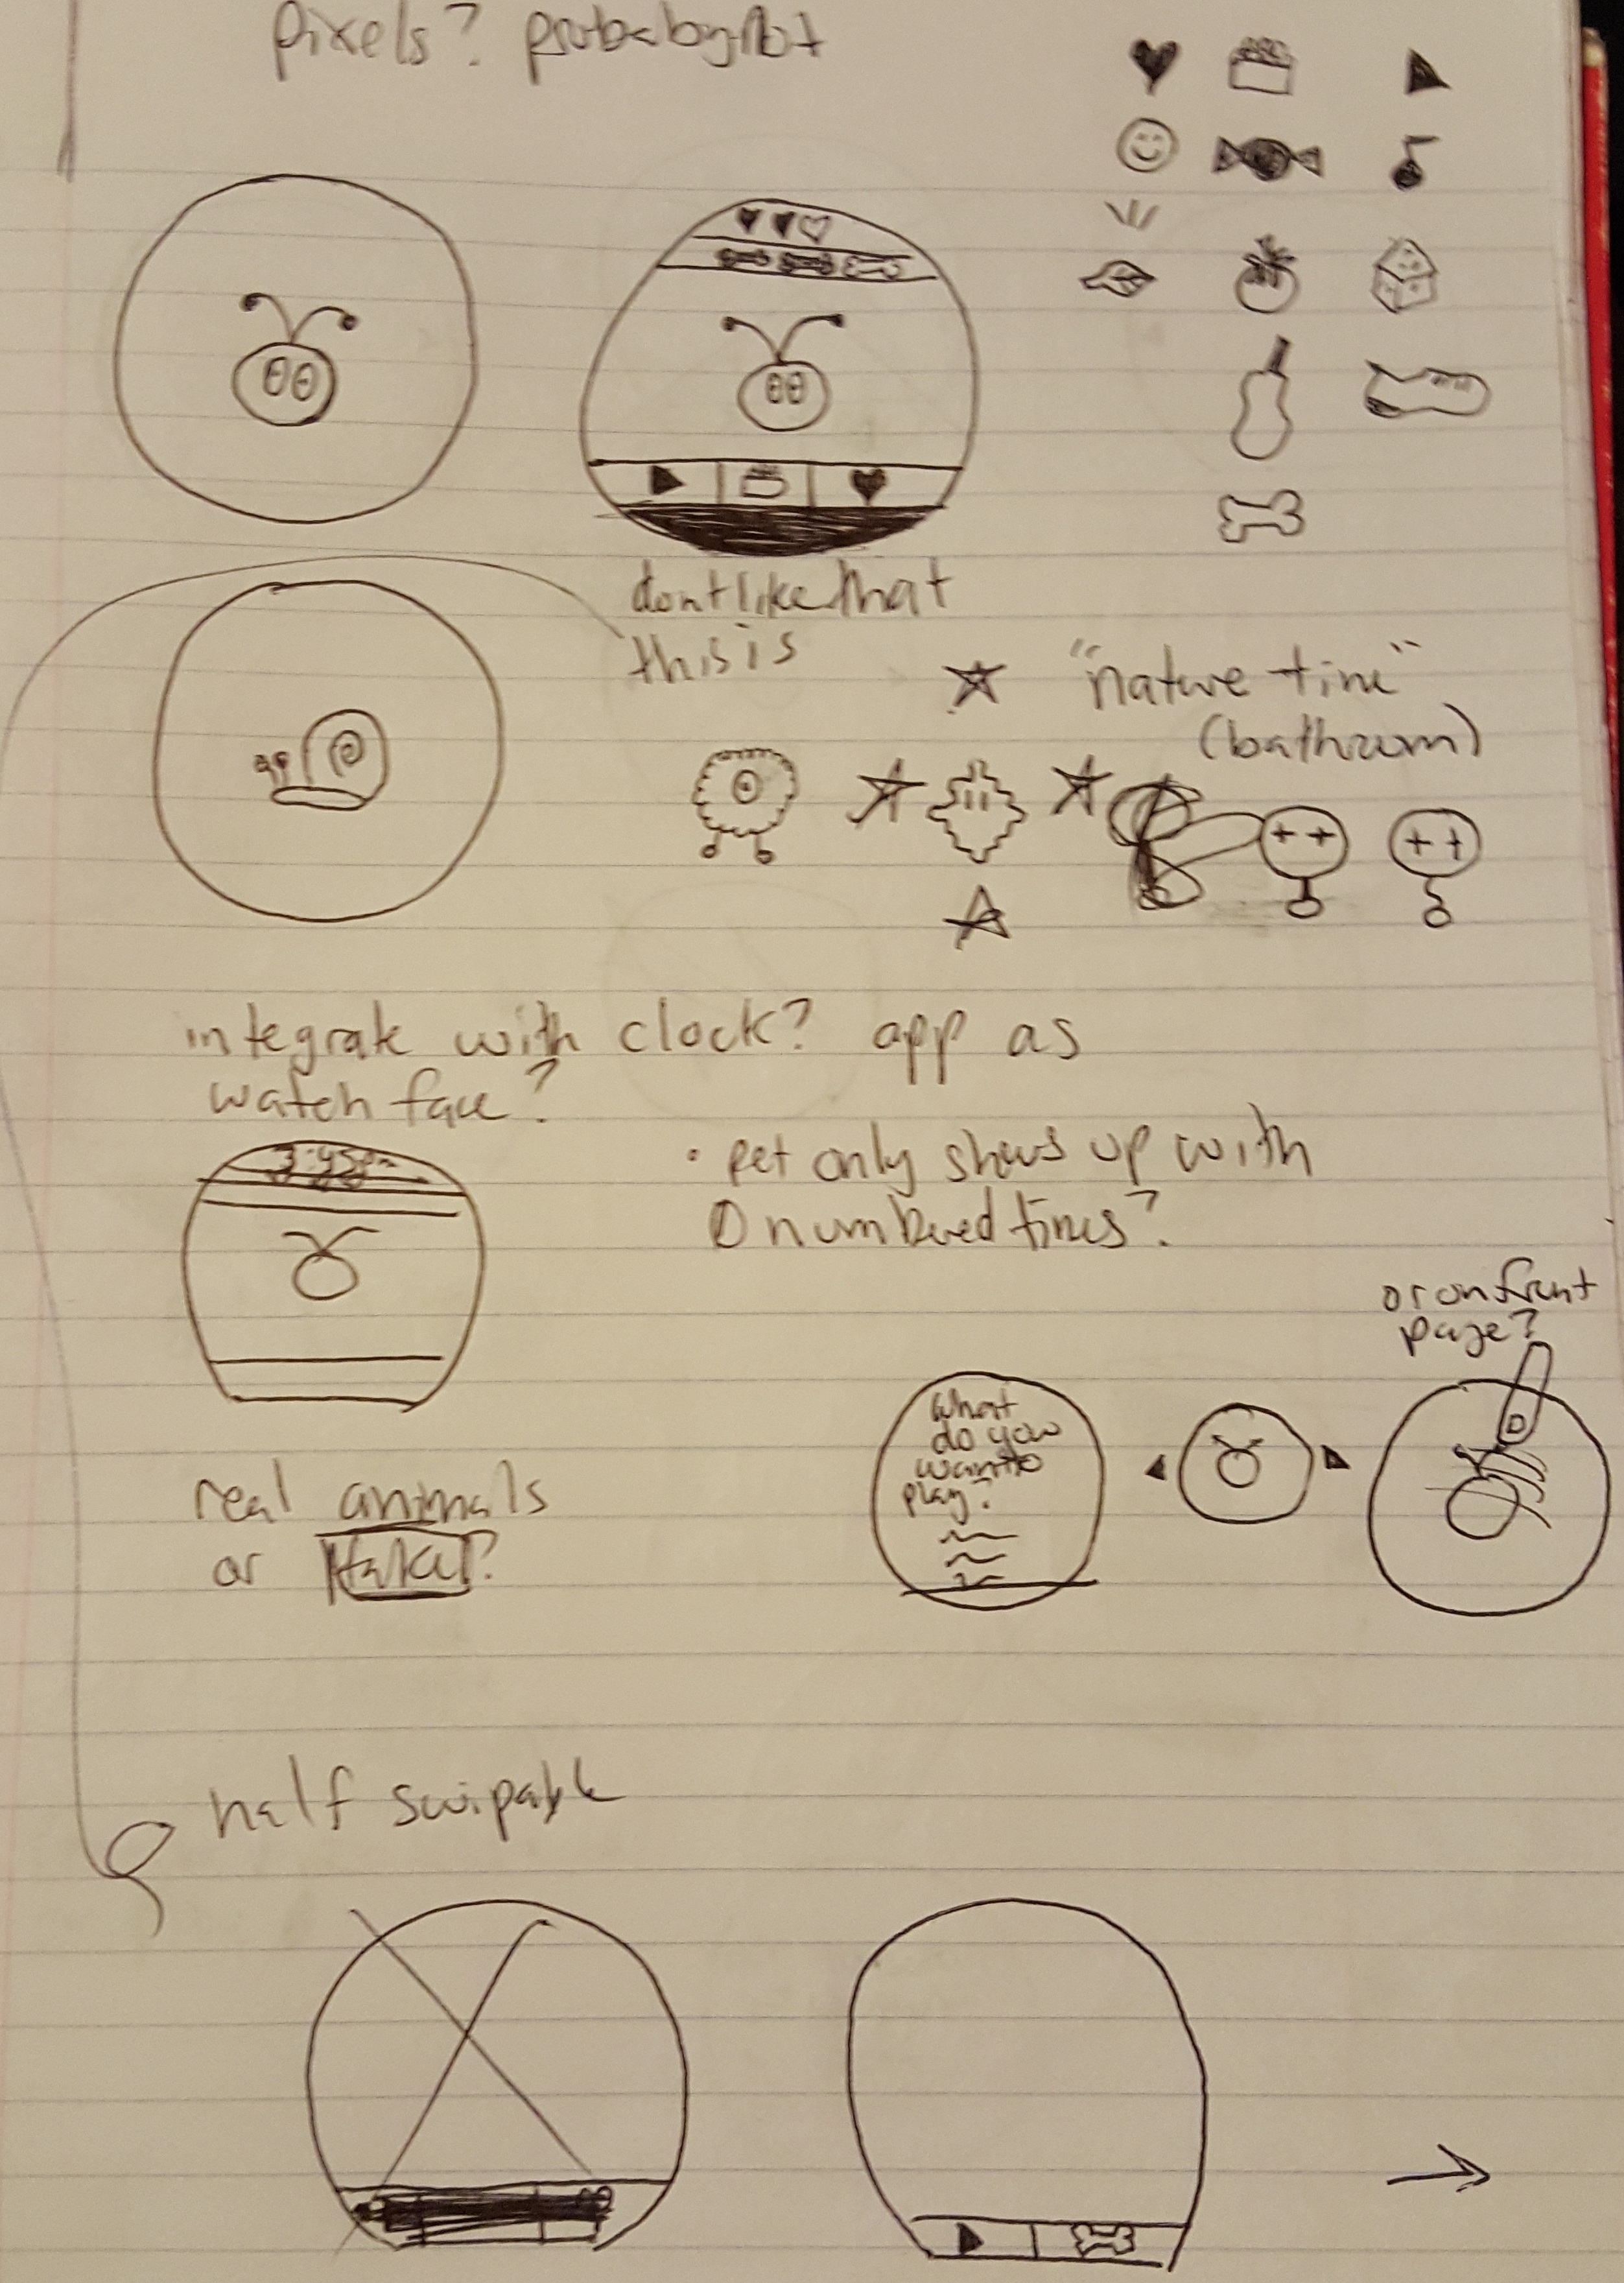 pixels? probably not
dont like that
this is
"nature time"
(bathroom)
integrate with clock? app as
watch face?
3:45pm
• pet only shows up with
0 numbered times?
or on front
page?
What
do you
want to
play?
real animals
or fake?
half swipable